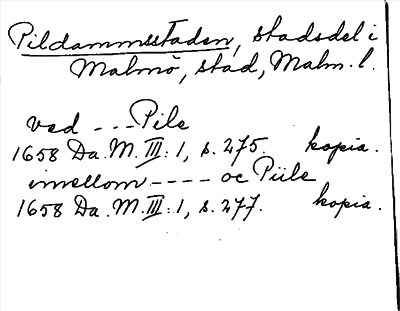 Pildammsstaden, stadsdel i
Malmö, stad, Malm. l.
ved - - - Pile
1658 Da. M. III: 1, s. 275. kopia.
imellom - - - - oc Piile
1658 Da. M. III: 1, s. 277. kopia.